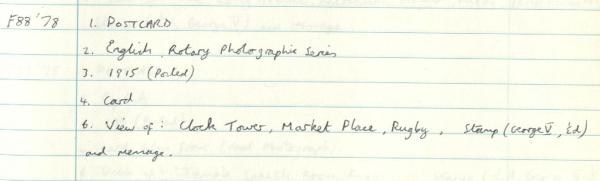 F88'78 1. POSTCARD
2. English, Rotary Photographic Series
3. 1915 (Posted)
4. Card
6. View of: Clock Tower, Market Place, Rugby, Stamp (George V, ½d)
and message.